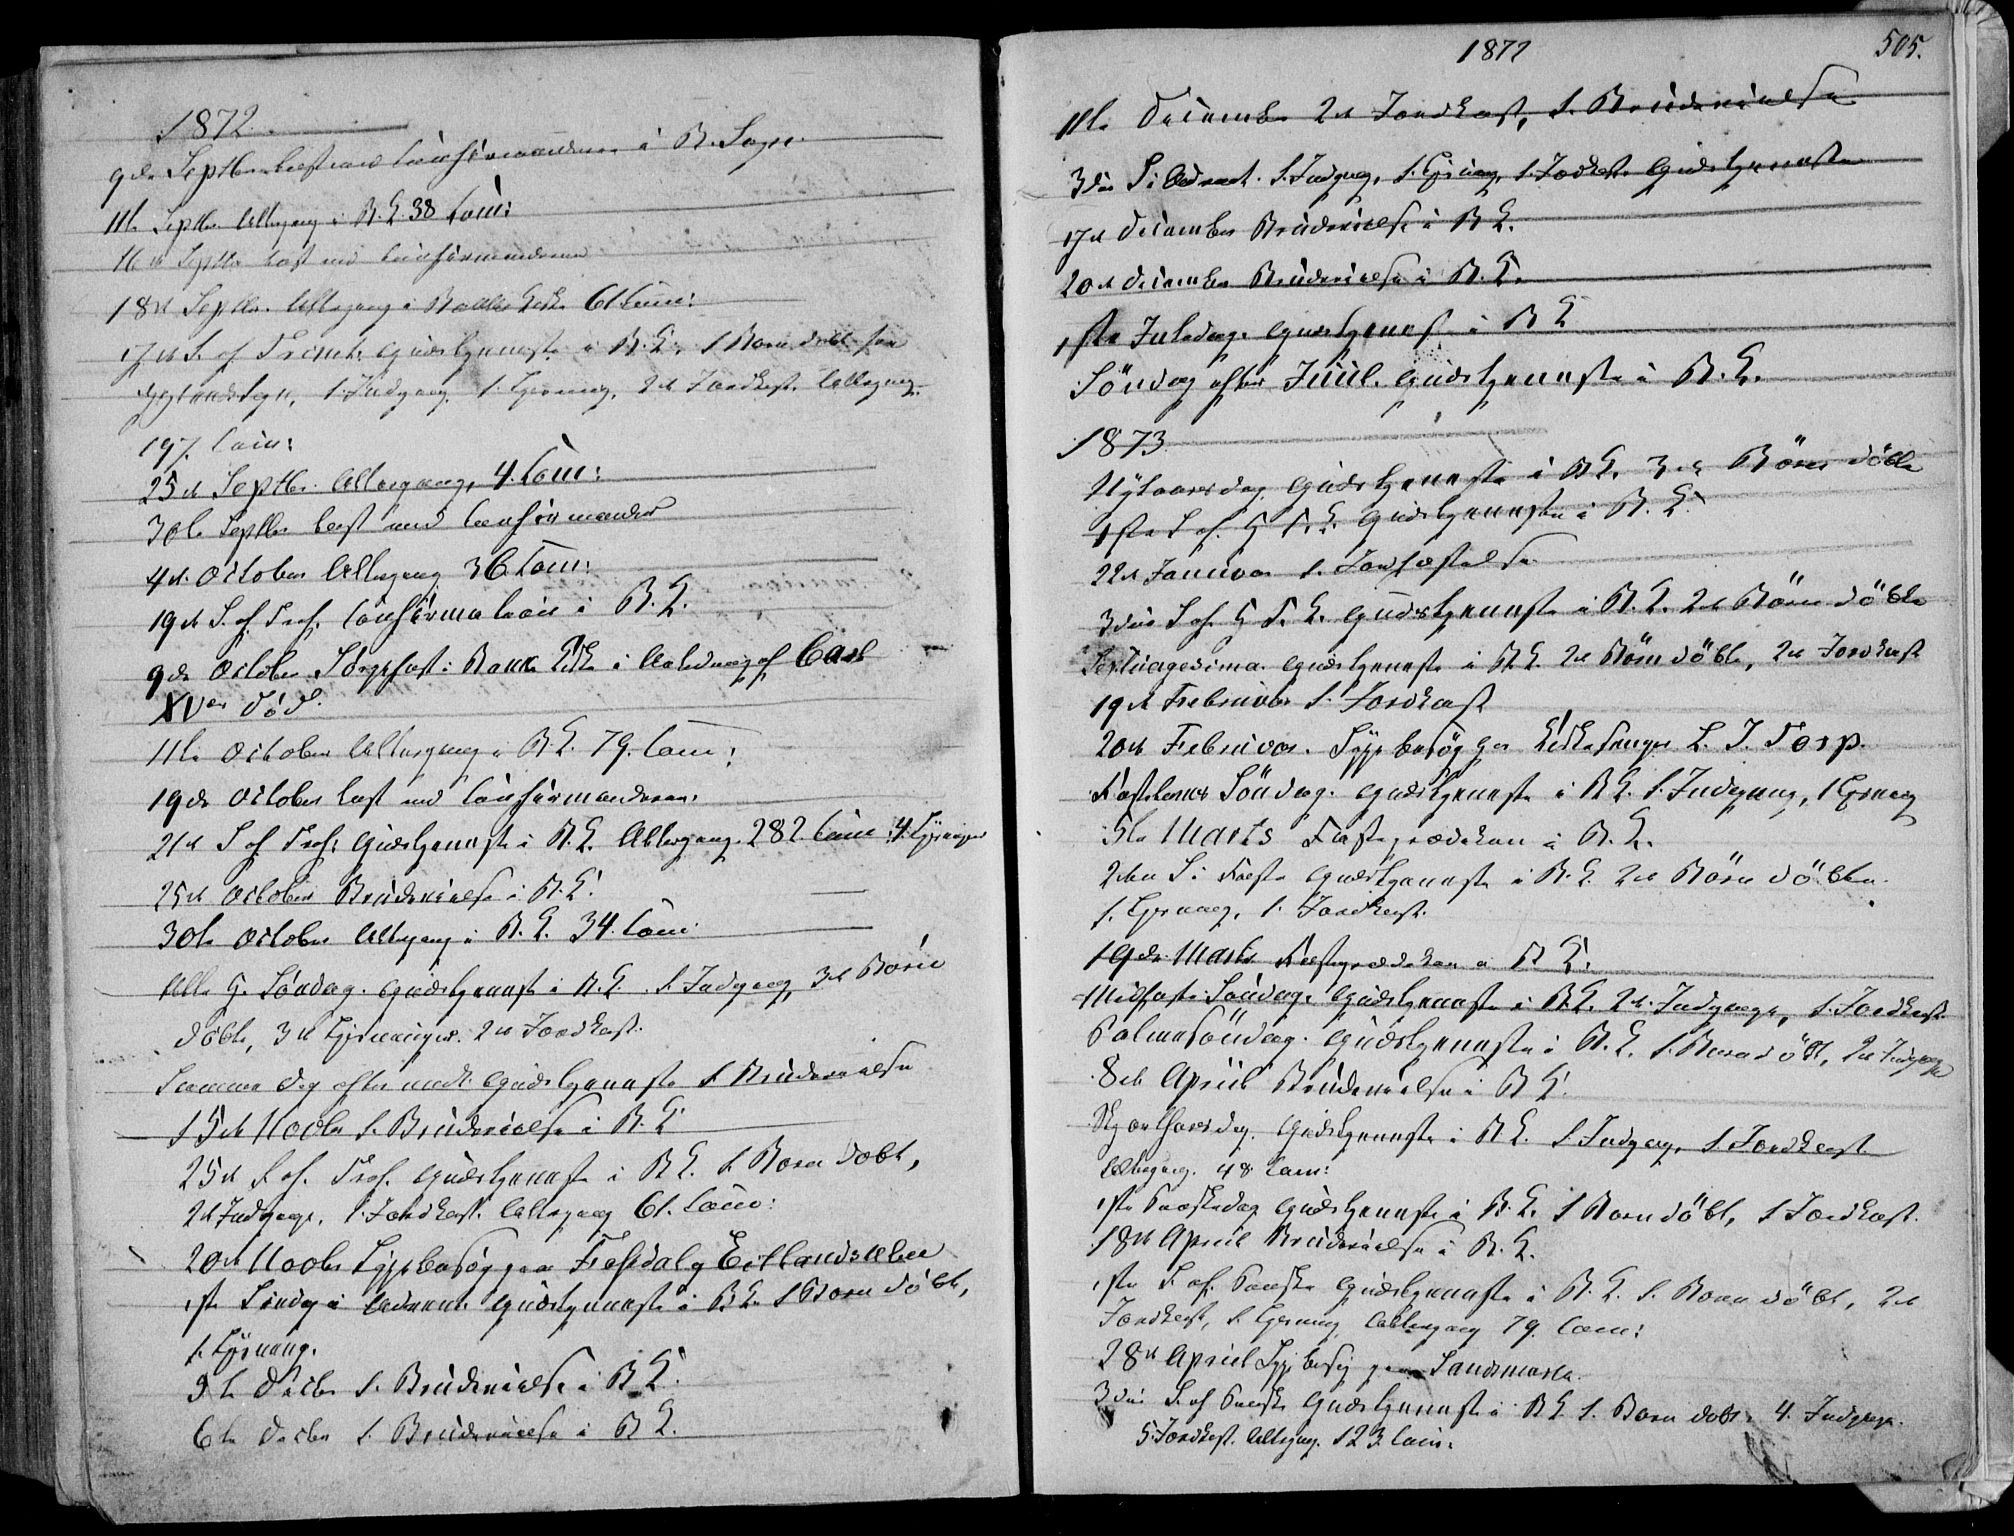 1872.
9de Septbr læst med Confirmanderne i B. Sogn.
11te Septbr. Altergang i B. K. 38 Com:
16de Septbr læst med Confirmanderne
18de Septbr. Altergang i Kirke 61 Com:
17de S. ef Trinit: Gudstjeneste i B. K. 1 Barn døbt fra
Sogn, 1. Indgang. 1. 2de Jordkast. Altergang
197. Com:
25de Septbr. Altergang, 4. Com:
30te Septbr læst med Confirmander
4de October Altergang 36 Com:
19de S. ef. Tref. Confirmation i B. K.
9de October Sørgefest i Kirke i Anledning af Carl
XVes Død.
11te October Altergang i B. K. 79. Com:
19de October læst med Confirmanderne.
21de S. ef Tref: Gudstjeneste i B. K. Altergang. 282. Com: 4.
25de October Brudevielse i B. K.
30te October Altergang i B. K. 34. Com.
Alle H. Søndag. Gudstjeneste i B. K. 1. Indgang, 3de Børn
døbte, 3de 2de Jordkast.
Samme Dag efter Gudstjeneste 1 Brudevielse
15de Novbr 1. Brudevielse i B. K.
25de S. ef. Tref. Gudstjeneste i B K. 1 Barn døbt,
2de Indgange, 1. Jordkast. Altergang 61. Com:
20de Novbr Sygebesøg paa
1ste Søndag i Advent Gudstjeneste i B K. 1 Barn døbt,
1.
5te Decbr 1. Brudevielse i B K.
6te Decbr 1. Brudevielse i B K.
1872 505.
11te December 2de Jordkast, 1. Brudevielse
3die S i Advent. 1. Indgang, 1. 1. Jordkast. Gudstjeneste
17de December Brudevielse i B K.
20de December Brudevielse i B. K.
1ste Juledag. Gudstjeneste i B K
Søndag efter Juul. Gudstjeneste i B. K.
1873
Nytaarsdag Gudstjeneste i B K. 3de Børn døbte
1ste S. ef. H. T. K. Gudstjeneste i B. K.
22de Januar 1. Jordfæstelse
3die S. ef H T. K. Gudstjeneste i B. K. 2de Børn døbte
Septuagesima. Gudstjeneste i B K. 2de Børn døbte, 2de Jordkast
19de Februar 1. Jordkast
20de Februar. Sygebesøg hos Kirkesanger L. J. Torp.
Fastelavns Søndag. Gudstjeneste i B K. 1. Indgang, 1
5te Marts Fasteprædiken i B. K.
2den S i Faste Gudstjeneste i B. K. 2de Børn døbte.
1. 1. Jordkast.
19de Marts Fasteprædiken i B K.
Midfaste Søndag. Gudstjeneste i B K. 2de Indgange, 1. Jordkast
Palmesøndag. Gudstjeneste i B. K. 1. Barn døbt, 2de Indgange
8de April Brudevielse i B K.
Skjærthorsdag. Gudstjeneste i B K. 1 Indgang, 1. Jordkast
Altergang. 48 Com:
1ste Paaskedag Gudstjeneste i B. K. 1 Barn døbt, 1 Jordkast.
18de April Brudevielse i B. K.
1ste S. ef. Paaske Gudstjeneste i B. K. 1. Barn døbt, 2de
Jordkast, 1. Altergang 79. Com:
28de April Sygebesøg paa
3die S. ef Paaske Gudstjeneste i B K 1. Barn døbt, 4. Indgange.
5. Jordkast. Altergang. 123. Com: